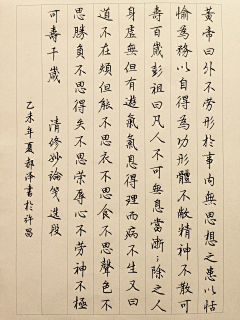 黄帝曰外不劳形於事内無思想之患以恬
愉為務以自得為功形體不敝精神不散可
壽百歲彭祖曰凡人不可無息當漸々除之人
身虚無但有遊氣氣息得理而病不生又曰
道不在煩但能不思衣不思食不思聲色不
思勝負不思得失不思荣辱心不劳神不極
可壽千歲 清修妙論笺選段
乙未年夏郝淨書於许昌